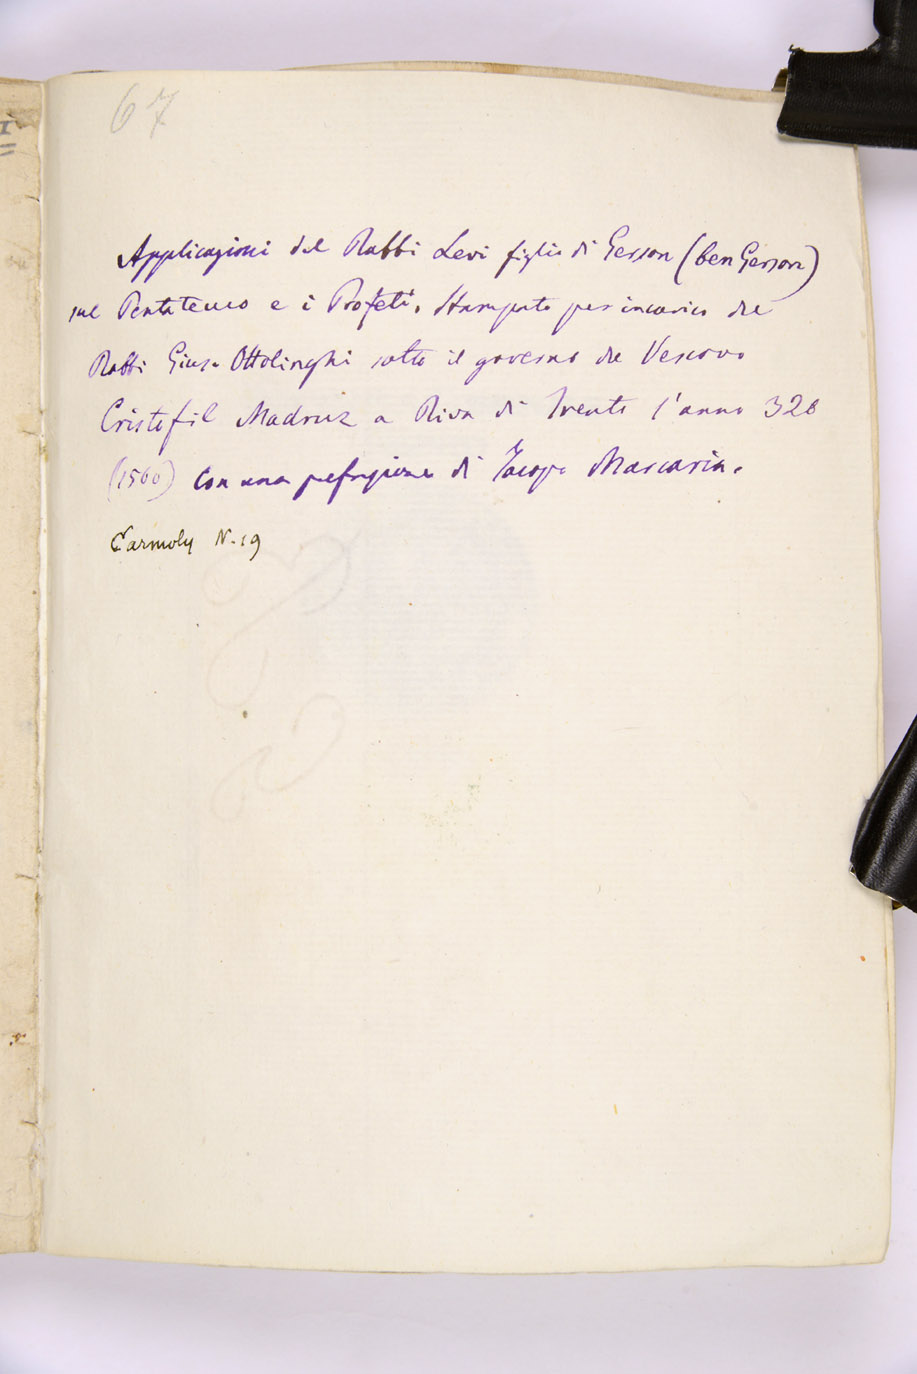 67
Applicazioni del Rabbi Levi figlio di Gerson (ben Gerson)
sul Pentateuco e i Profeti. Stampato per incarico del
Rabbi Gius. Ottolinghi sotto il governo del Vescovo
Cristofil Madruz a Riva di Trento l'anno 320
(1560) con una prefazione di Jacopo Marcaria.
Carmoly N. 19